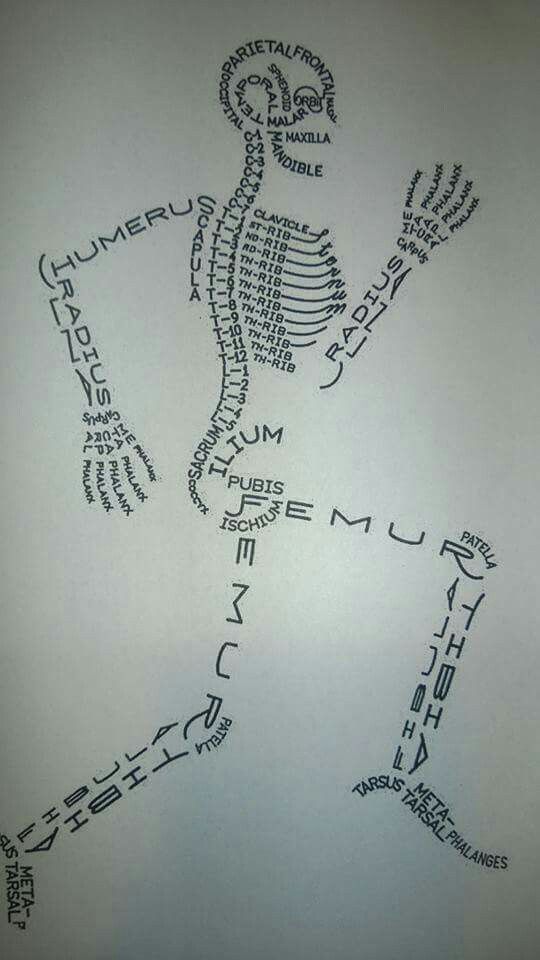 PARIETAL
FRONTAL
NASAL
OCCIPITAL
TEMPORAL
SPHENOID
ORBIT
MALAR
MAXILLA
MANDIBLE
C-1
C-2
C-3
C-4
C-5
C-6
C-7
HUMERUS
SCAPULA
CLAVICLE
STERNUM
T-1
T-2
T-3
T-4
T-5
T-6
T-7
T-8
T-9
T-10
T-11
T-12
ST-RIB
ND-RIB
RD-RIB
TH-RIB
TH-RIB
TH-RIB
TH-RIB
TH-RIB
TH-RIB
TH-RIB
TH-RIB
TH-RIB
L-1
L-2
L-3
L-4
L-5
RADIUS
ULNA
CARPUS
METACARPAL
PHALANX
PHALANX
PHALANX
PHALANX
PHALANX
RADIUS
ULNA
CARPUS
METACARPAL
PHALANX
PHALANX
PHALANX
PHALANX
PHALANX
SACRUM
COCCYX
ILIUM
PUBIS
ISCHIUM
FEMUR
PATELLA
TIBIA
FIBULA
TARSUS
META-
TARSAL
PHALANGES
FEMUR
PATELLA
TIBIA
FIBULA
SUS
META-
TARSAL
P